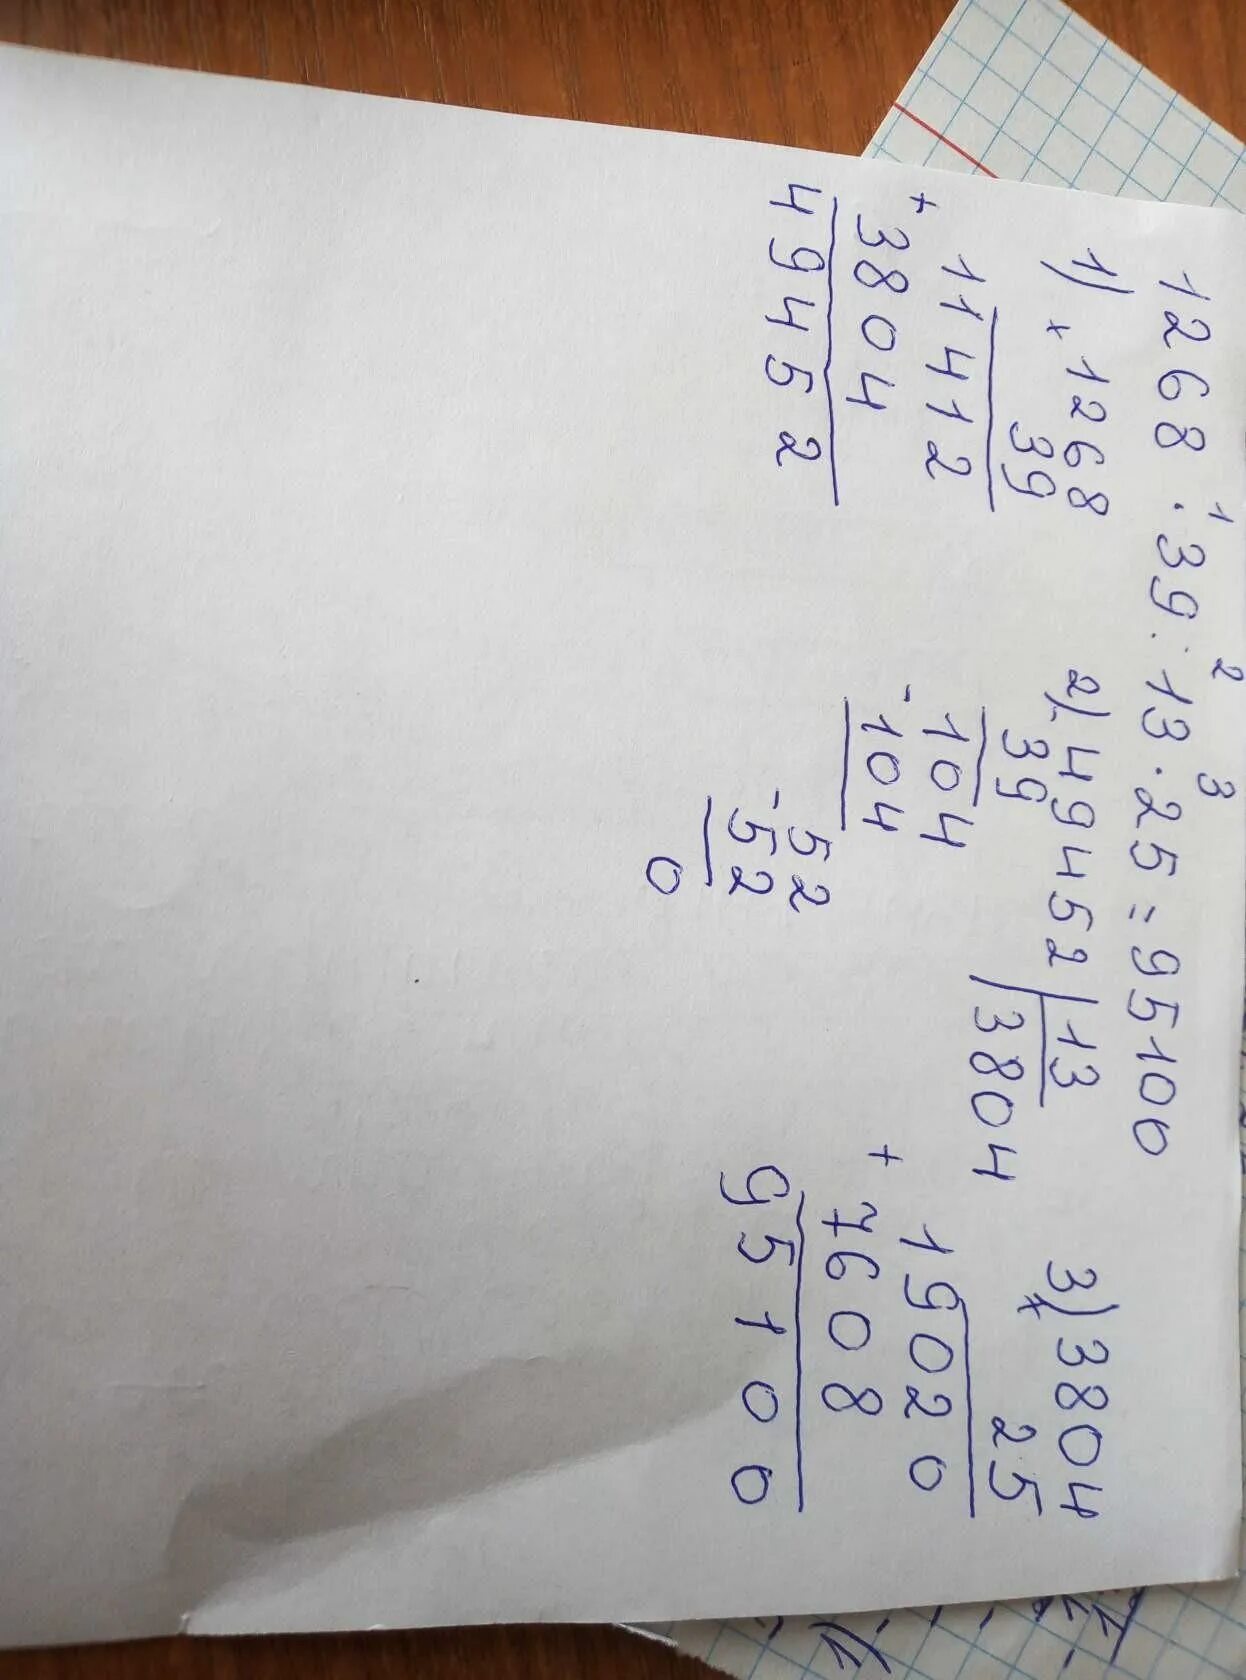 1 2 3
1268 · 39 : 13 · 25 = 95100
1) × 1268
39
11412
+ 3804
49452
2) - 49452 | 13
39 | 3804
104
- 104
52
- 52
0
3) × 3804
25
19020
+ 7608
95100